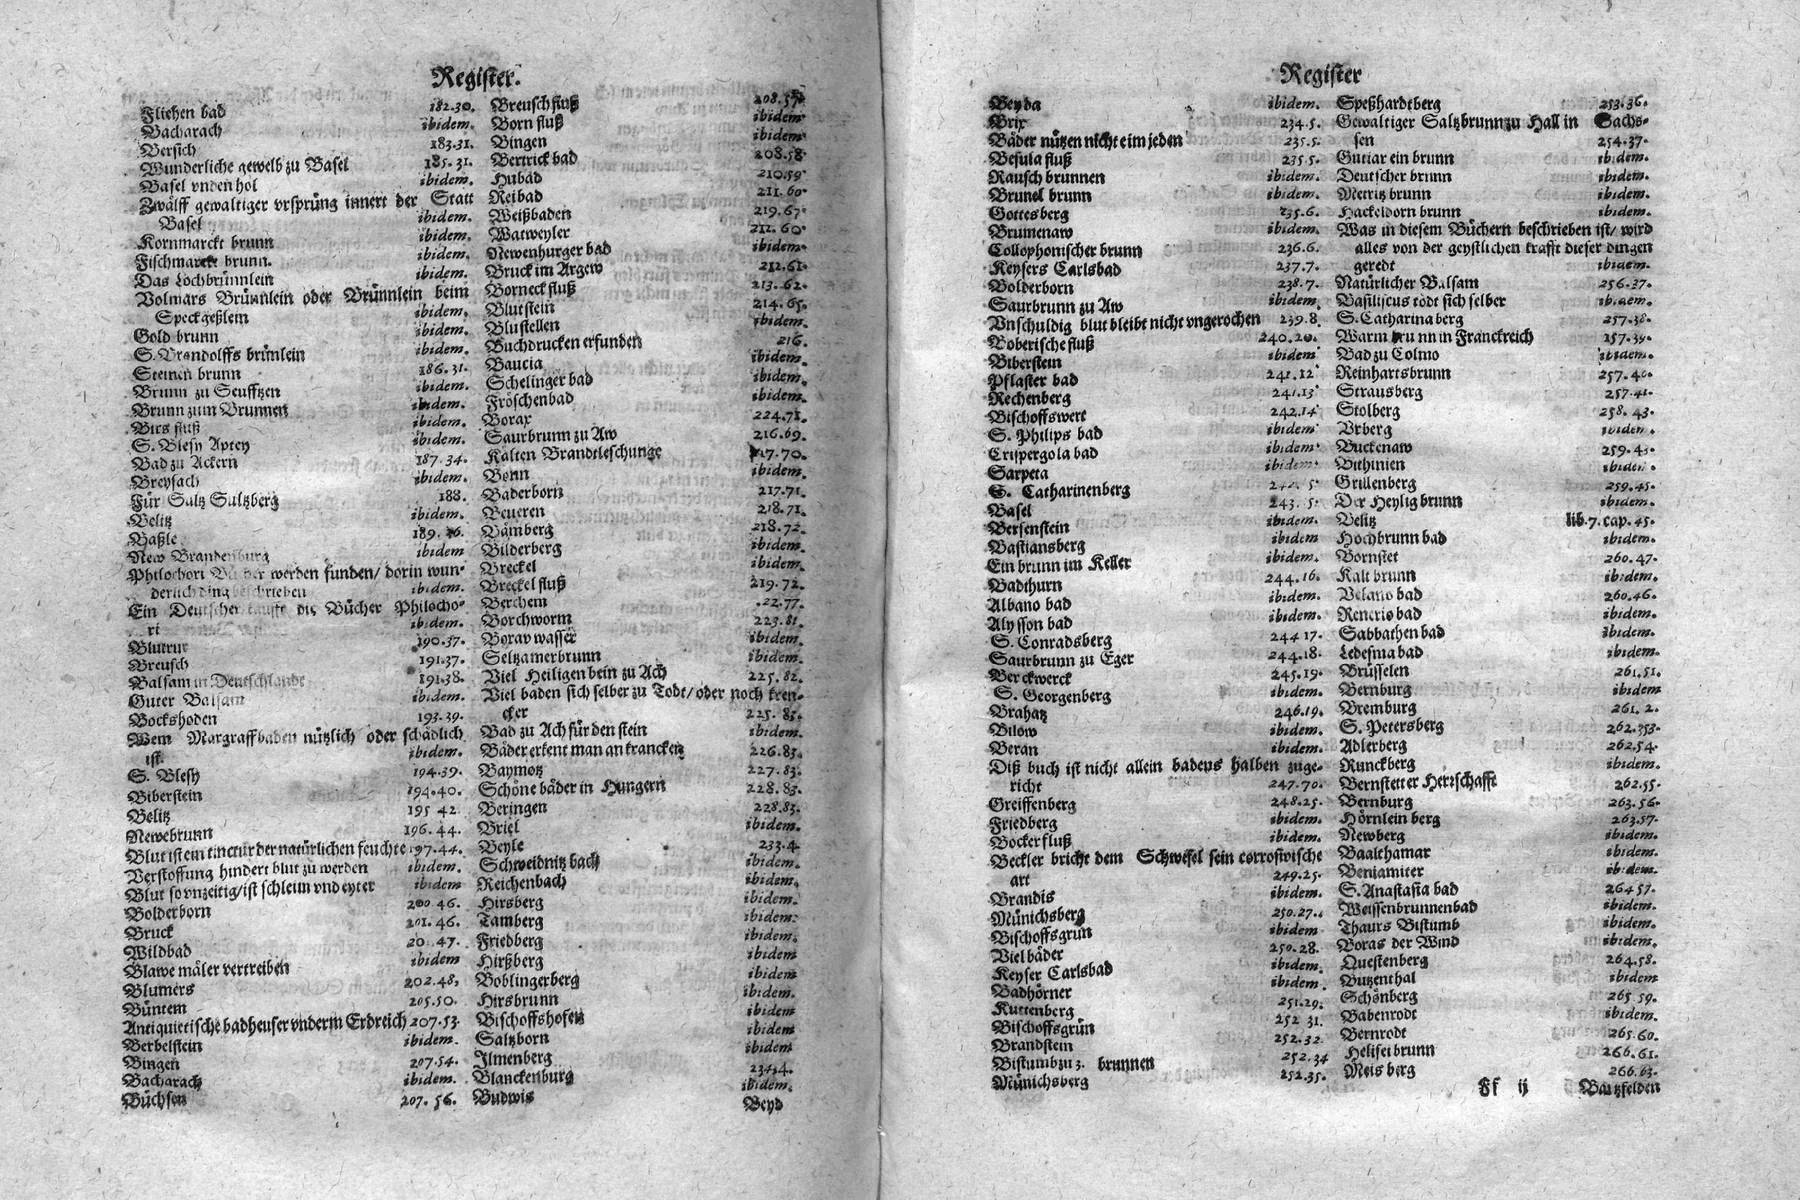 Register.
Fliehen bad 182.30.
Bacharach ibidem.
Bersich 183.31.
Wunderliche gewelb zu Basel 185.31.
Basel vnden hol ibidem.
Zwälff gewaltiger vrsprüng innert der Statt
Basel ibidem.
Kornmarckt brunn ibidem.
Fischmarckt brunn. ibidem.
Das Lochbrünnlein ibidem.
Volmars Brünnlein oder Brünnlein beim
Speckgeßlein ibidem.
Gold brunn ibidem.
S. Brandolffs brünlein ibidem.
Steinen brunn 186.31.
Brunn zu Seufftzen ibidem.
Brunn zum Brunnen ibidem.
Birs fluß ibidem.
S. Blesy Aptey ibidem.
Bad zu Ackern 187.34.
Breysach ibidem.
Für Saltz Sultzberg 188.
Belitz ibidem.
Baßle 189.
New Brandenburg ibidem
Philochori Bücher werden funden/ dorin wun-
derlich ding beschrieben ibidem.
Ein Deutscher taufft die Bücher Philocho-
ri ibidem.
Blutrur 190.37.
Breusch 191.37.
Balsam in Deutschlandt 191.38.
Guter Balsam ibidem.
Bockshoden 193.39.
Wem Margraffbaden nützlich oder schädlich
ist. ibidem.
S. Blesy 194.39.
Biberstein 194.40.
Belitz 195 42
Newebrunn 196.44.
Blut ist ein tinctur der natürlichen feuchte 197.44.
Verstoffung hindert blut zu werden ibidem.
Blut so vnzeitig/ist schleim vnd eyter ibidem
Bolderborn 200 46.
Bruck 201.46.
Wildbad 20 .47.
Blawe mäler vertreiben ibidem
Blumers 202.48,
Büntem 205.50.
Antiquietische badheuser vnderm Erdreich 207.53.
Berbelstein ibidem.
Bingen 207.54.
Bacharach ibidem.
Büchsen 207.56.
Breusch fluß 208.57.
Born fluß ibidem.
Bingen ibidem.
Bertrick bad 208.58.
Hubad 210.59.
Reibad 211.60.
Weißbaden 219.67.
Watweyler 212.60.
Newenhurger bad ibidem.
Bruck im Argew 212.61.
Borneck fluß 213.62.
Blutstein 214.65.
Blustellen ibidem.
Buchdrucken erfunden 216.
Baucia ibidem.
Schelinger bad ibidem.
Fröschenbad ibidem.
Borax 224.71.
Saurbrunn zu Aw 216.69.
Kalten Brandtleschunge 217.70.
Bonn ibidem.
Baderborn 217.71.
Beueren 218.71.
Bämberg 218.72.
Bilderberg ibidem.
Breckel ibidem.
Breckel fluß 219.72.
Berchem .22.77.
Borchworm 223.81.
Borav wasser ibidem.
Seltzamerbrunn ibidem.
Viel Heiligen bein zu Ach 225.82.
Viel baden sich selber zu Todt/ oder noch kren-
cker 225.83.
Bad zu Ach für den stein ibidem.
Bäder erkent man an krancken 226.83.
Baymotz 227.83.
Schöne bäder in Hungern 228.83.
Beringen 228.83.
Briel ibidem.
Beyle 233.4.
Schweidnitz bach ibidem.
Reichenbach ibidem.
Hirsberg ibidem.
Tamberg ibidem.
Friedberg ibidem.
Hirßberg ibidem.
Boblingerberg ibidem
Hirsbrunn ibidem.
Bischoffshofen ibidem
Saltzborn ibidem
Ilmenberg ibidem
Blanckenburg 234.4.
Budwis ibidem.
Beyd
Register
Beyda ibidem.
Brix 234.5.
Bäder nützen nicht eim jeden 235.5.
Besula fluß 235.5.
Rausch brunnen ibidem.
Brunol brunn ibidem.
Gottesberg 235.6.
Brumenaw ibidem.
Collophonischer brunn 236.6.
Keysers Carlsbad 237.7.
Bolderborn 238.7.
Saurbrunn zu Aw ibidem.
Vnschuldig blut bleibt nicht vngerochen 239.8.
Boberische fluß 240.20.
Biberstein ibidem
Pflaster bad 241.12
Rechenberg 241.13
Bischoffswert 242.14
S. Philips bad ibidem
Crispergola bad ibidem
Sarpeta ibidem
S. Catharinenberg
Basel 243. 5.
Bersenstein ibidem.
Bastiansberg ibidem
Ein brunn im Keller ibidem.
Badthurn 244.16.
Albano bad ibidem.
Alysson bad ibidem.
S. Conradsberg 244 17.
Saurbrunn zu Eger 244.18.
Berckwerck 245.19.
S. Georgenberg ibidem.
Brahatz 246.19.
Bilow ibidem.
Beran ibidem.
Diß buch ist nicht allein badens halben zuge-
richt 247.70.
Greiffenberg 248.25.
Friedberg ibidem.
Bocker fluß ibidem.
Beckler bricht dem Schwefel sein corrosivische
art 249.25.
Brandis ibidem.
Münichsberg 250.27.
Bischoffsgrün ibidem
Viel bäder 250.28.
Keyser Carlsbad ibidem.
Badhörner ibidem.
Kuttenberg 251.29.
Bischoffsgrün 252 31.
Brandstein 252.32
Bistumb zu 3. brunnen 252.34
Münichsberg 252.35.
Speßhardtberg 253.36.
Gewaltiger Saltzbrunn zu Hall in Sachs-
sen 254.37.
Gutiar ein brunn ibidem.
Deutscher brunn ibidem.
Metritz brunn ibidem.
Hackeldorn brunn ibidem.
Was in diesem Büchern beschrieben ist/ wird
alles von der geystlichen krafft dieser dingen
geredt ibidem.
Natürlicher Balsam 256.37.
Basiliscus tödt sich selber ibidem.
S. Catharina berg 257.38.
Warm brunn in Franckreich 257.39.
Bad zu Colmo ibidem.
Reinhartsbrunn 257.40.
Strausberg 257.41.
Stolberg 258. 43.
Vrberg ibidem.
Buckenaw 259.43.
Bithinien ibidem.
Grillenberg 259.45.
Der Heylig brunn ibidem.
Velitz lib.7.cap.45.
Hochbrunn bad ibidem.
Bornstet 260.47.
Kalt brunn ibidem.
Velano bad 260.46.
Reneris bad ibidem.
Sabbathen bad ibidem.
Ledesma bad ibidem.
Brüsselen 261.51.
Bernburg ibidem
Bremburg 261. 2.
S. Petersberg 262.353.
Adlerberg 262.54.
Runckberg ibidem.
Bernstetter Herrschafft 262.55.
Bernburg 263.56.
Hörnlein berg 263.57.
Newberg ibidem.
Baalthamar ibidem.
Beniamiter ibidem.
S. Anastasia bad 264 57.
Weissenbrunnenbad ibidem.
Thaurs Bistumb ibidem.
Boras der Wind ibidem.
Questenberg 264.58.
Butzenthal ibidem
Schönberg 265 59.
Babenrodt ibidem.
Bernrodt 265.60.
Helisei brunn 266.61.
Meis berg 266.63.
Ff ij Bautzfelden